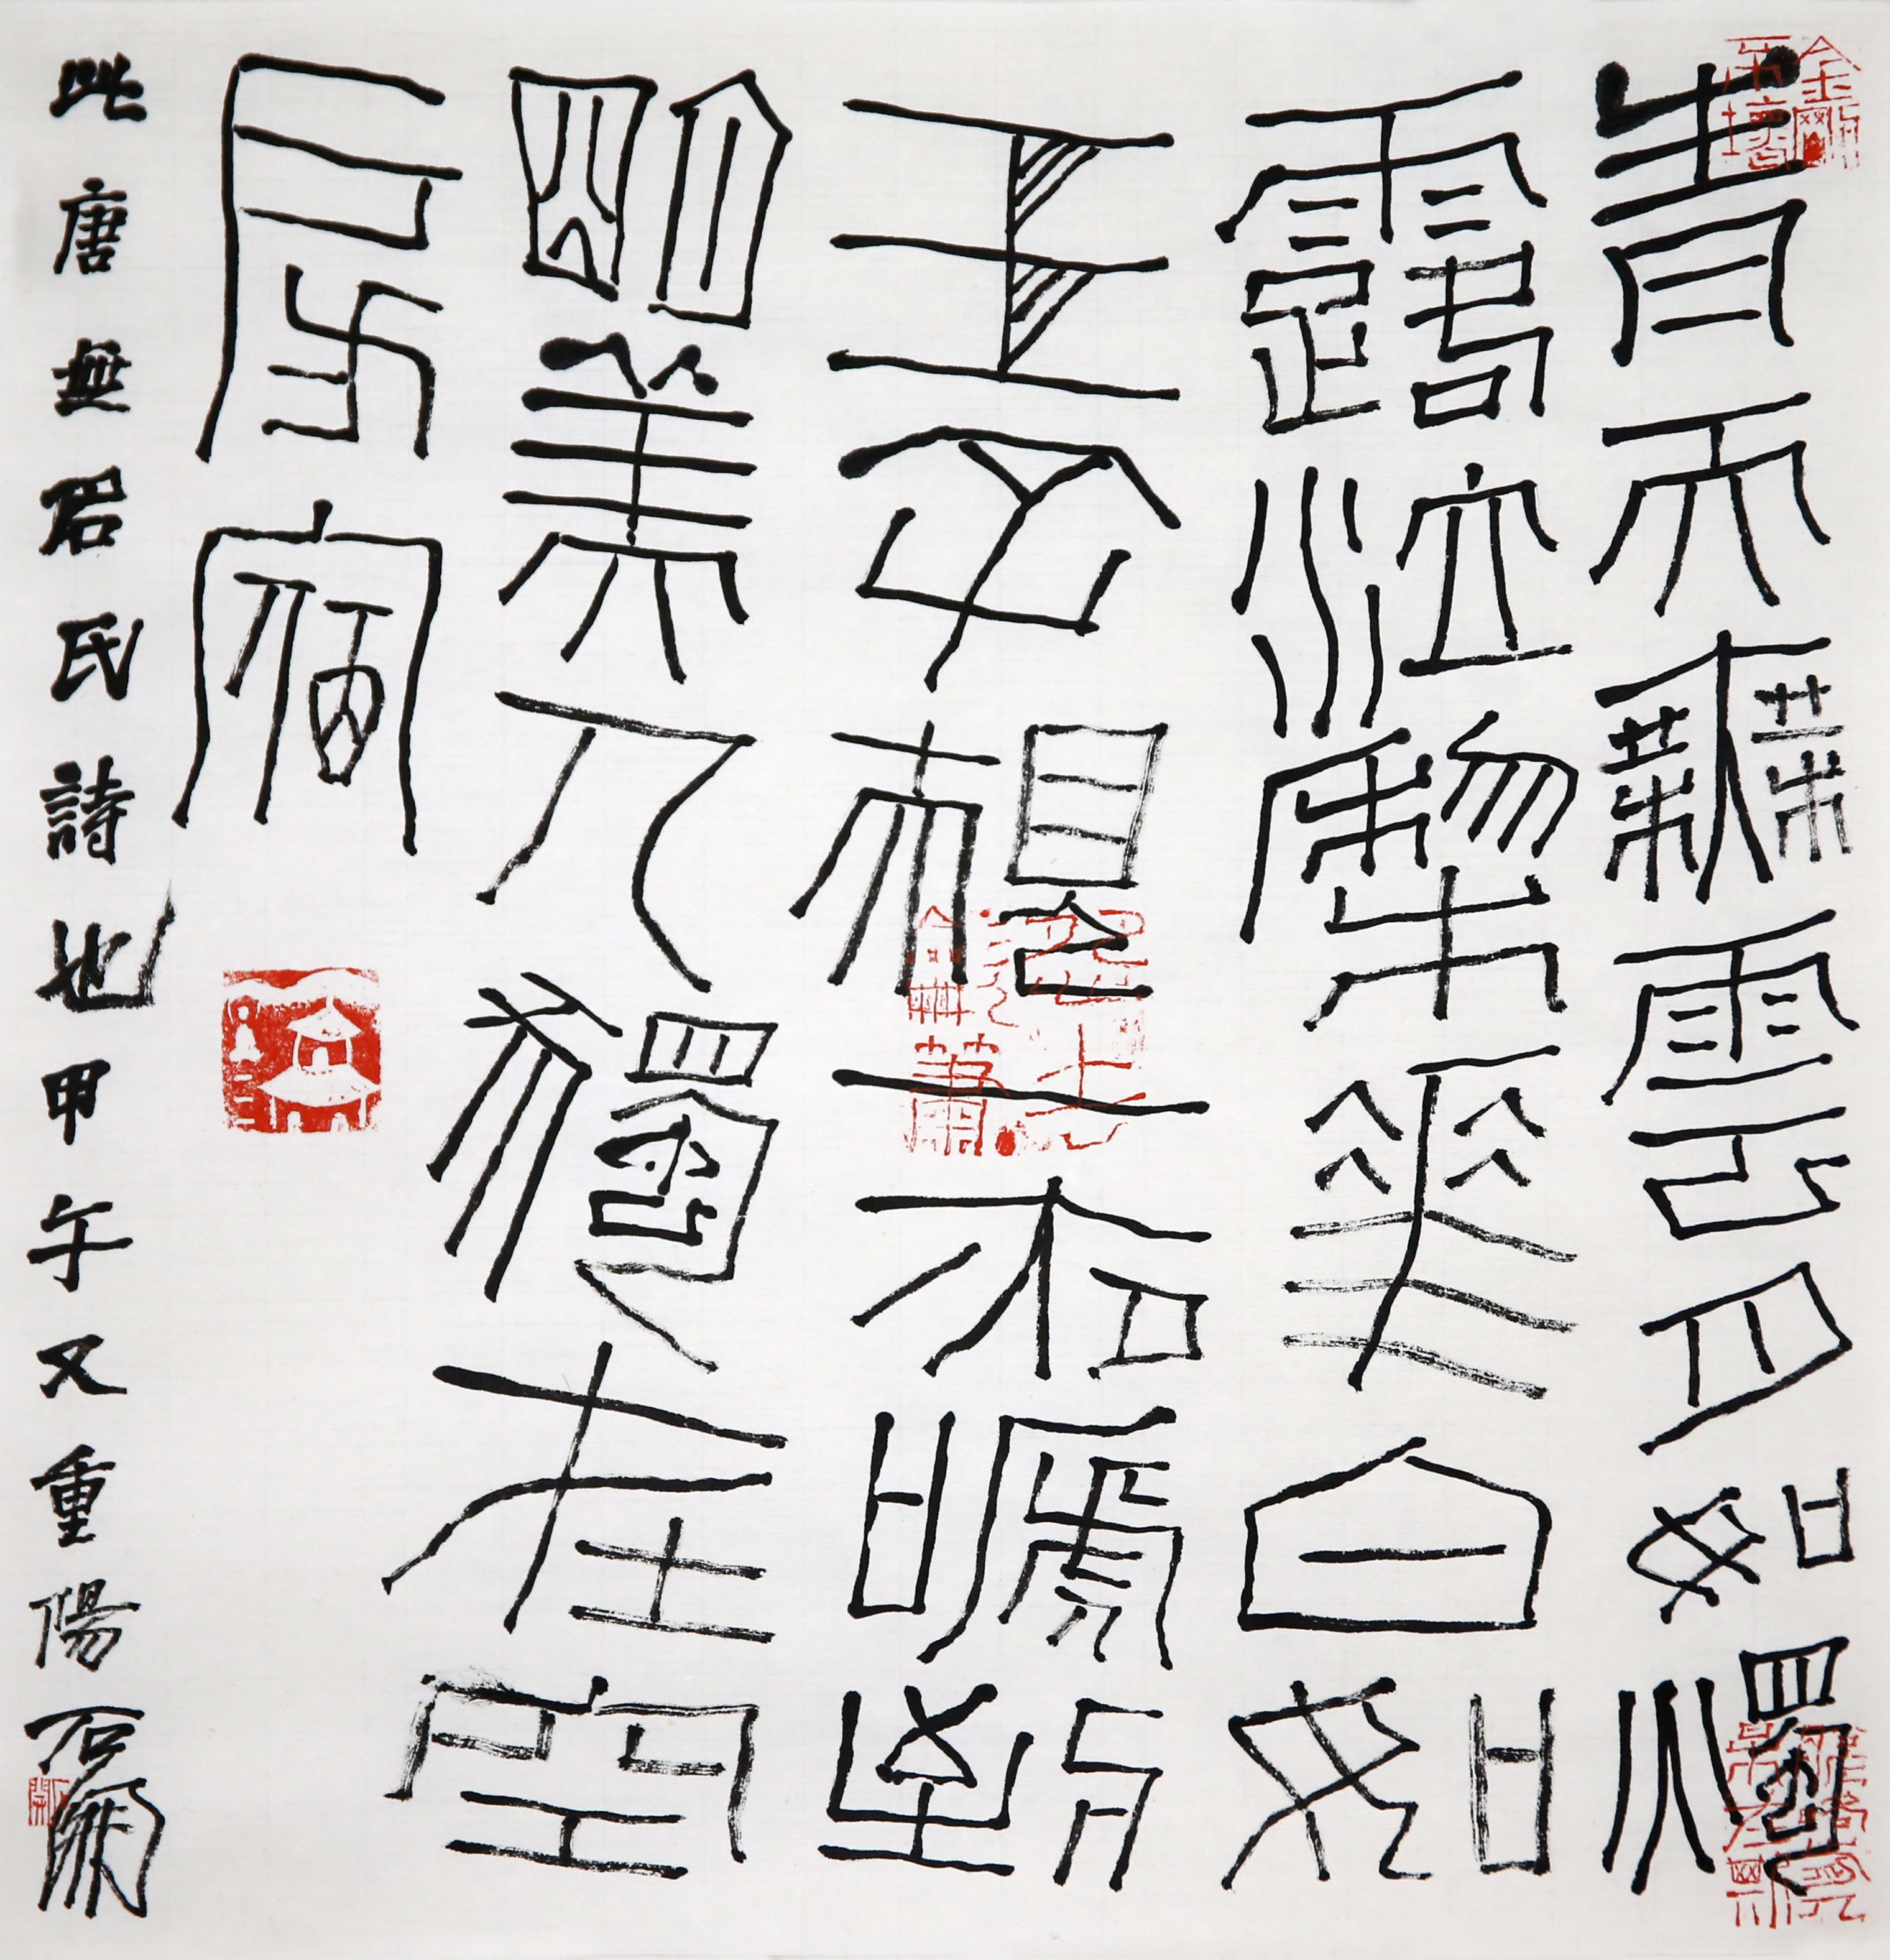 青天無雲月如燭
露泣梨華白如
玉子規一夜啼到
明美人獨在空
房宿
此唐無名氏詩也甲午又重陽石開